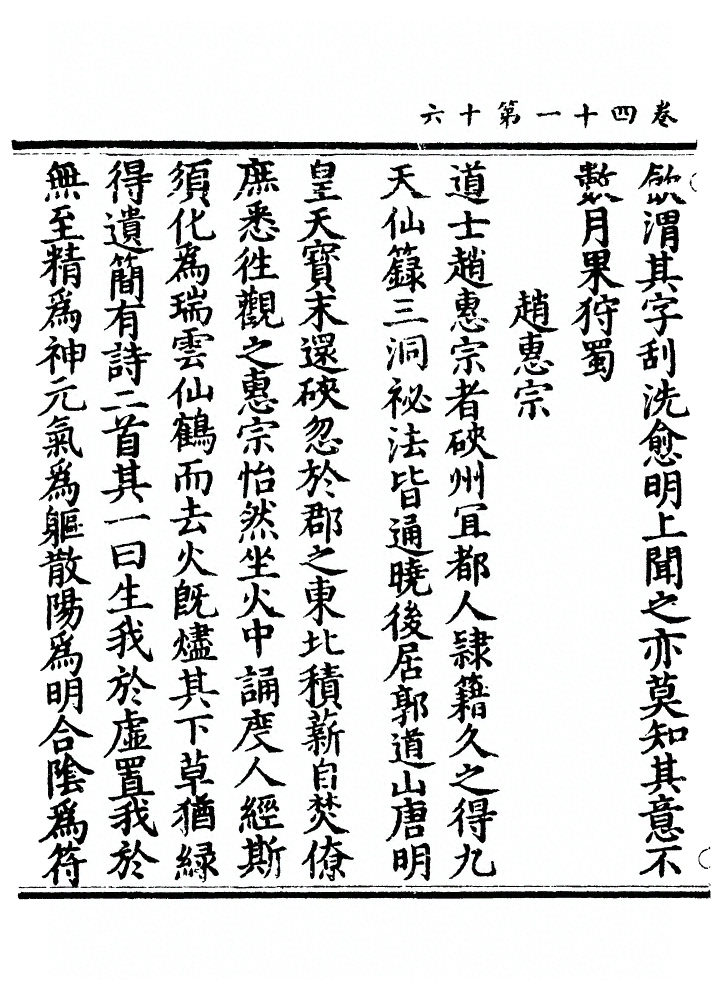 卷四十一第十六
飲渭其字刮洗愈明上聞之亦莫知其意不
數月果狩蜀
趙惠宗
道士趙惠宗者硤州冝都人隷籍久之得九
天仙籙三洞祕法皆通曉後居郭道山唐明
皇天寶末還硤忽於郡之東北積薪自焚僚
庶悉徃觀之惠宗怡然坐火中誦度人經斯
須化為瑞雲仙鶴而去火旣燼其下草猶緑
得遺簡有詩二首其一曰生我於虛置我於
無至精爲神元氣爲軀散陽爲明合陰爲符